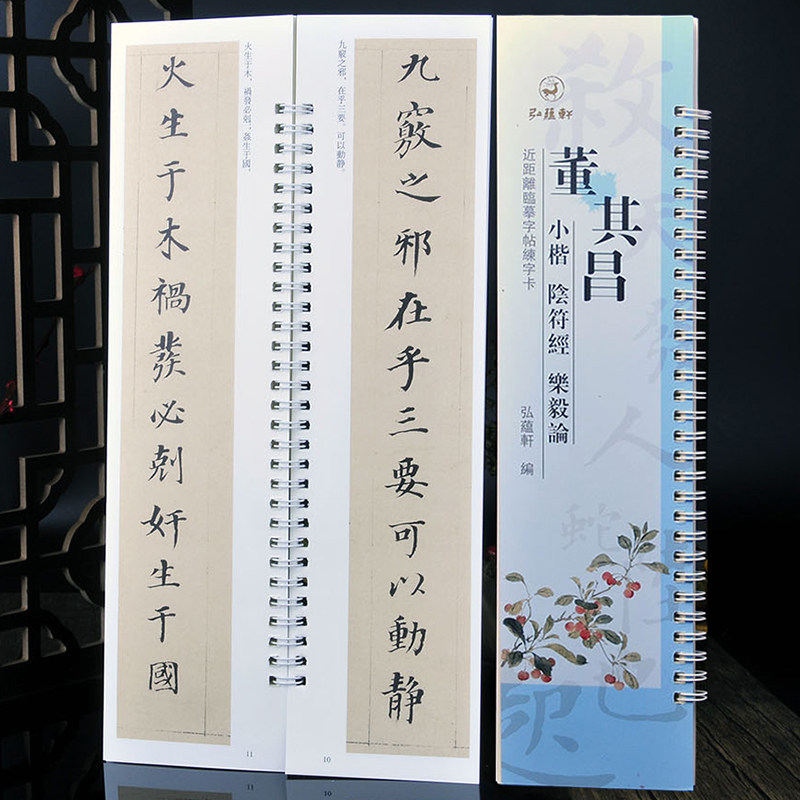 弘蘊軒
董其昌
小楷 陰符經 樂毅論
近距離臨摹字帖練字卡
弘蘊軒 編
九竅之邪在乎三要可以動静
九竅之邪，在乎三要，可以動静。
10
火生于木、禍發必剋；姦生于國，
火生于木禍發必剋奸生于國
11